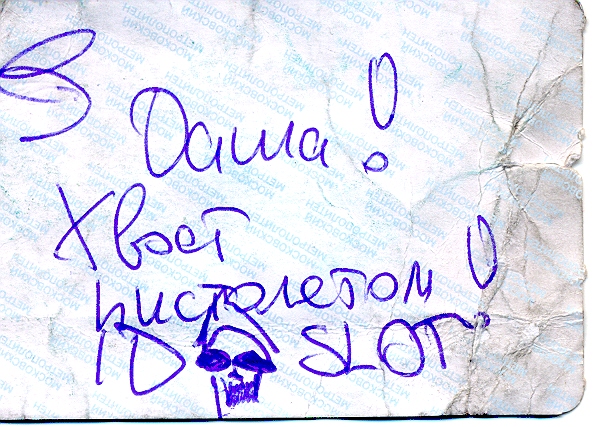 Даша!
Хвост
пистолетом!
ID SLOT
МОСКОВСКИЙ
МЕТРОПОЛИТЕН